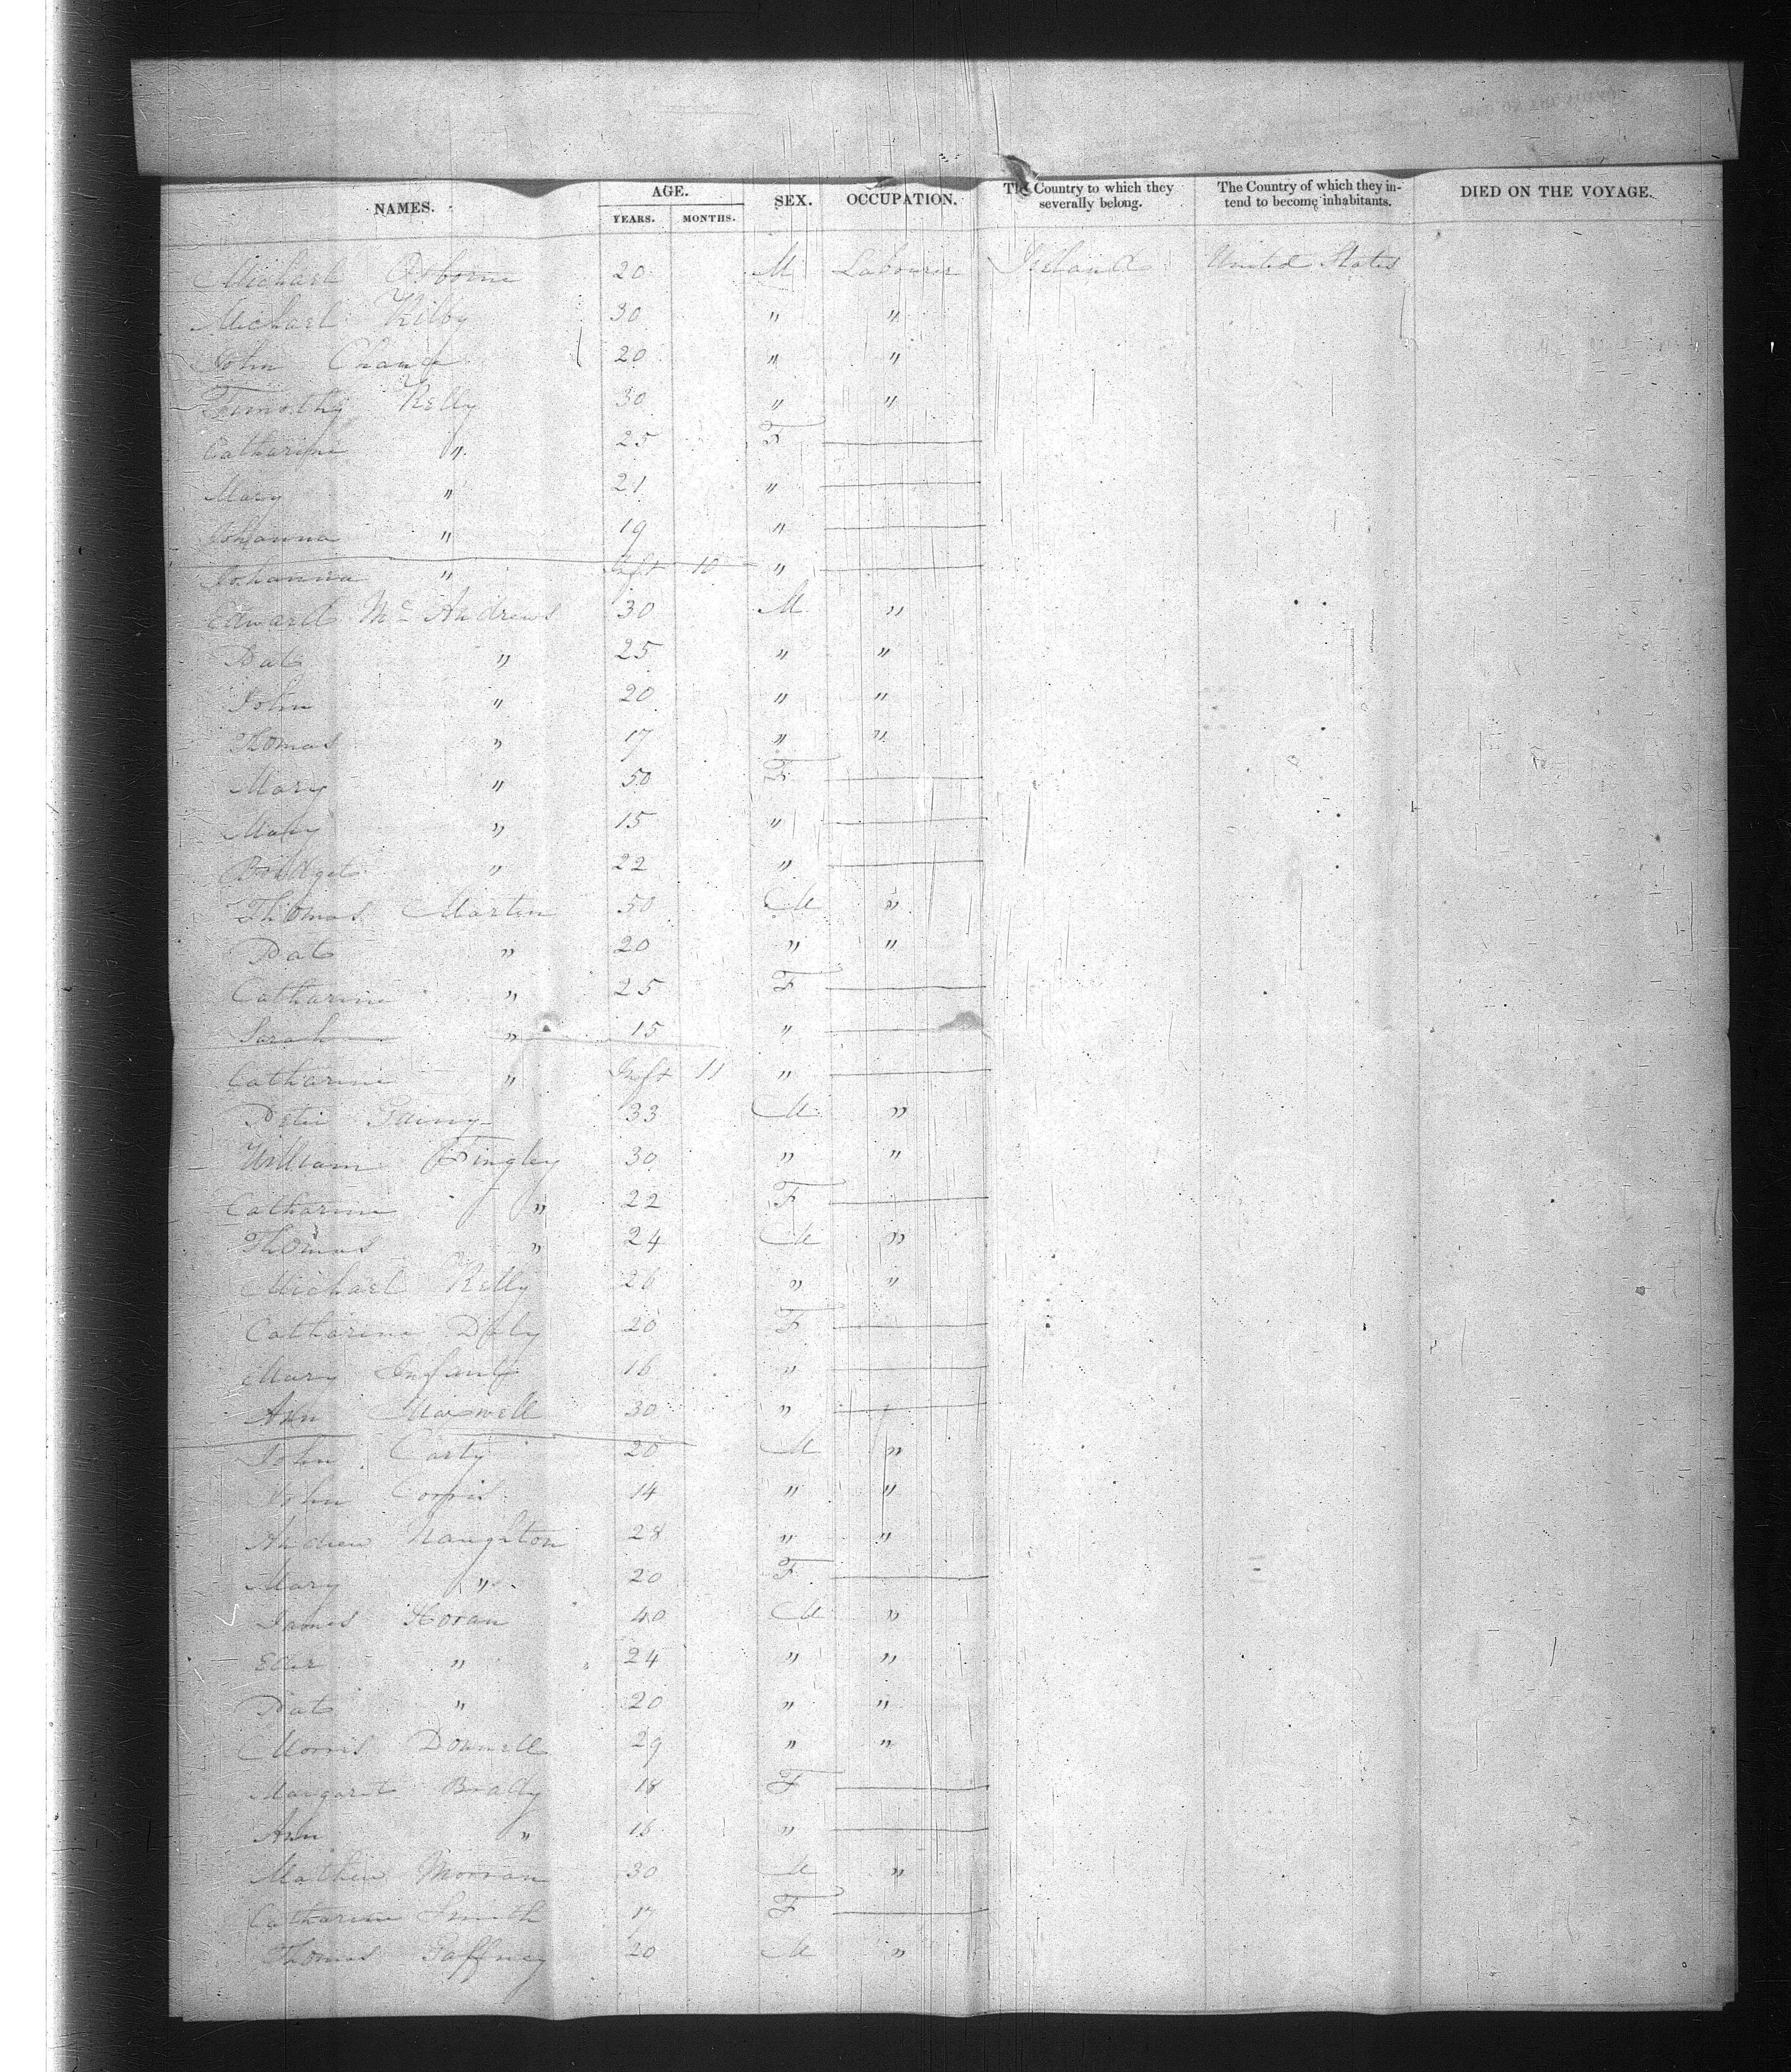 NAMES. AGE. YEARS. MONTHS. SEX. OCCUPATION. The Country to which they severally belong. The Country of which they intend to become inhabitants. DIED ON THE VOYAGE.
Michael Osborne 20 M Labourer Ireland United States
Michael Kilby 30 " "
John 20 " "
Timothy Kelly 30 " "
Catharine " 25 F
Mary " 21 "
Johanna " 19 "
Johanna " Inft 10 "
Edward Mc Andrews 30 M "
Pat " 25 " "
John " 20 " "
Thomas " 17 " "
Mary " 50 F
Mary " 15 "
Bridget " 22 "
Thomas Martin 50 M "
Pat " 20 " "
Catharine " 25 F
Sarah " 15 "
Catharine " Inft 11 "
Peter 33 M "
William Tingley 30 " "
Catharine " 22 F
Thomas " 24 M "
Michael Kelly 26 " "
Catharine Daly 20 F
Mary 16 "
Ann Maxwell 30 "
John Carty 20 M "
John 14 " "
Andrew Naughton 28 " "
Mary " 20 F
James Horan 40 M "
" 24 " "
Pat " 20 " "
Morris Donnell 29 " "
Margaret Brady 18 F
Ann " 16 "
Mathew Morran 30 M "
Catharine Smith 17 F
Thomas Gaffney 20 M "